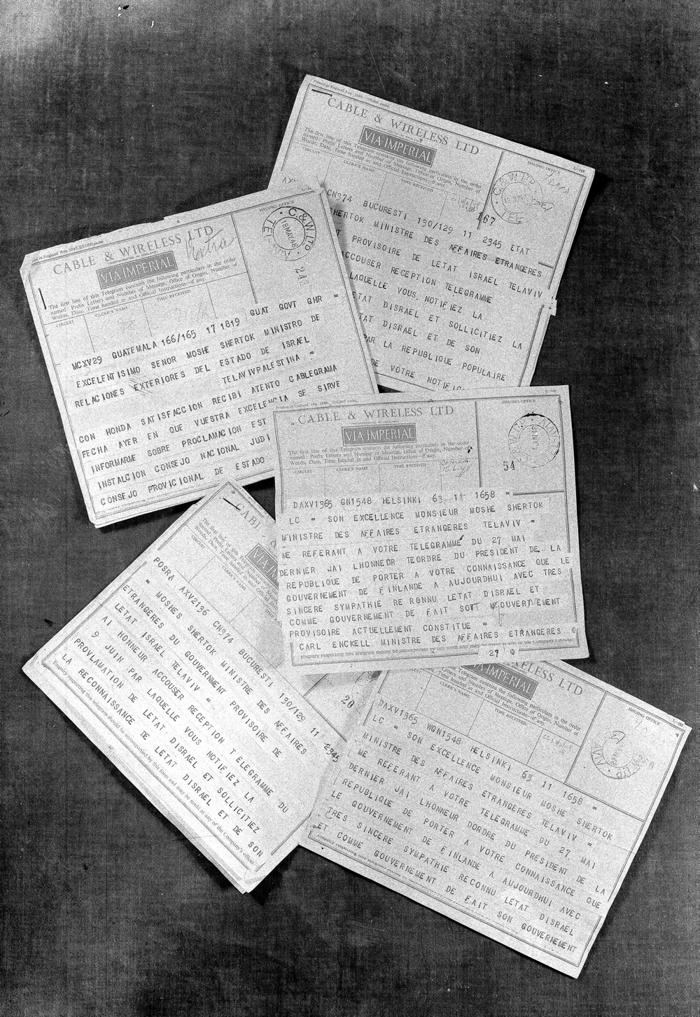 CABLE & WIRELESS LTD
VIA IMPERIAL
CN374 BUCURESTI 150/129 11 2345 ETAT
SHERTOK MINISTRE DES AFFAIRES ETRANGERES
T PROVISOIRE DE LETAT ISRAEL TELAVIV
ACCOUSER RECEPTION TELEGRAMME
LAQUELLE VOUS NOTIFIEZ LA
ETAT DISRAEL ET SOLLICITIEZ LA
ETAT DISRAEL ET DE SON
PAR LA REPUBLIQUE POPULAIRE
DE VOTRE NOTIFIC
167
CABLE & WIRELESS LTD
VIA IMPERIAL
The first line of this Telegram contains the following particulars in the order
named: Prefix Letters and Number of Message, Office of Origin, Number of
Words, Date, Time handed in and Official Instructions—if any.
CIRCUIT CLERK'S NAME TIME RECEIVED
MCXV29 GUATEMALA 166/165 17 1819 GUAT GOVT GHR =
EXCELENTISIMO SENOR MOSHE SHERTOK MINISTRO DE
RELACIONES EXTERIORES DEL ESTADO DE ISRAEL
TELAVIVPALESTINA =
CON HONDA SATISFACCION RECIBI ATENTO CABLEGRAMA
FECHA AYER EN QUE VUESTRA EXCELENCIA SE SIRVE
INFORMARME SOBRE PROCLAMACION EST
INSTALCION CONSEJO NACIONAL JUDI
CONSEJO PROVICIONAL DE ESTADO
CABLE & WIRELESS LTD
VIA IMPERIAL
ISSUING OFFICE
CLERK'S NAME TIME RECEIVED
54
DAXV1365 GN1548 HELSINKI 63 11 1658 =
LC = SON EXCELLENCE MONSIEUR MOSHE SHERTOK
MINISTRE DES AFFAIRES ETRANGERES TELAVIV =
ME REFERANT A VOTRE TELEGRAMME DU 27 MAI
DERNIER JAI LHONNEUR TEORDRE DU PRESIDENT DE LA
REPUBLIQUE DE PORTER A VOTRE CONNAISSANCE QUE LE
GOUVERNEMENT DE FINLANDE A AUJOURDHUI AVEC TRES
SINCERE SYMPATHIE RE ONNU LETAT DISRAEL ET
COMME GOUVERNEMENT DE FAIT SON GOUVERTEMENT
PROVISOIRE ACTUELLEMENT CONSTITUE =
CARL ENCKELL MINISTRE DES AFFAIRES ETRANGERES
27
CABLE
POSRA AXV2136 CN374 BUCURESTI 150/129 11 2345
= MOSHES SHERTOK MINISTRE DES AFFAIRES
ETRANGERES DU GOUVERNMENT PROVISOIRE DE
LETAT ISRAEL TELAVIV =
AI HONNEUR ACCOUSER RECEPTION TELEGRAMME DU
9 JUIN PAR LAQUELLE VOUS NOTIFIEZ LA
PROVLAMATION DE LETAT DISRAEL ET SOLLICITIEZ
LA RECONNAISSANCE DE LETAT DISRAEL ET DE SON
20
WIRELESS LTD
IMPERIAL
ISSUING OFFICE
TIME RECEIVED
DAXV1365 WGN1548 HELSINKI 63 11 1658 =
LC = SON EXCELLENCE MONSIEUR MOSHE SHERTOK
MINISTRE DES AFFAIRES ETRANGERES TELAVIV =
ME REFERANT A VOTRE TELEGRAMME DU 27 MAI
DERNIER JAI LHONNEUR DORDRE DU PRESIDENT DE LA
REPUBLIQUE DE PORTER A VOTRE CONNAISSANCE QUE
LE GOUVERNEMENT DE FINLANDE A AUJOURDHUI AVEC
TRES SINCERE SYMPATHIE RECONNU LETAT DISRAEL
ET COMME GOUVERNEMENT DE FAIT SON GOUVERNEMENT